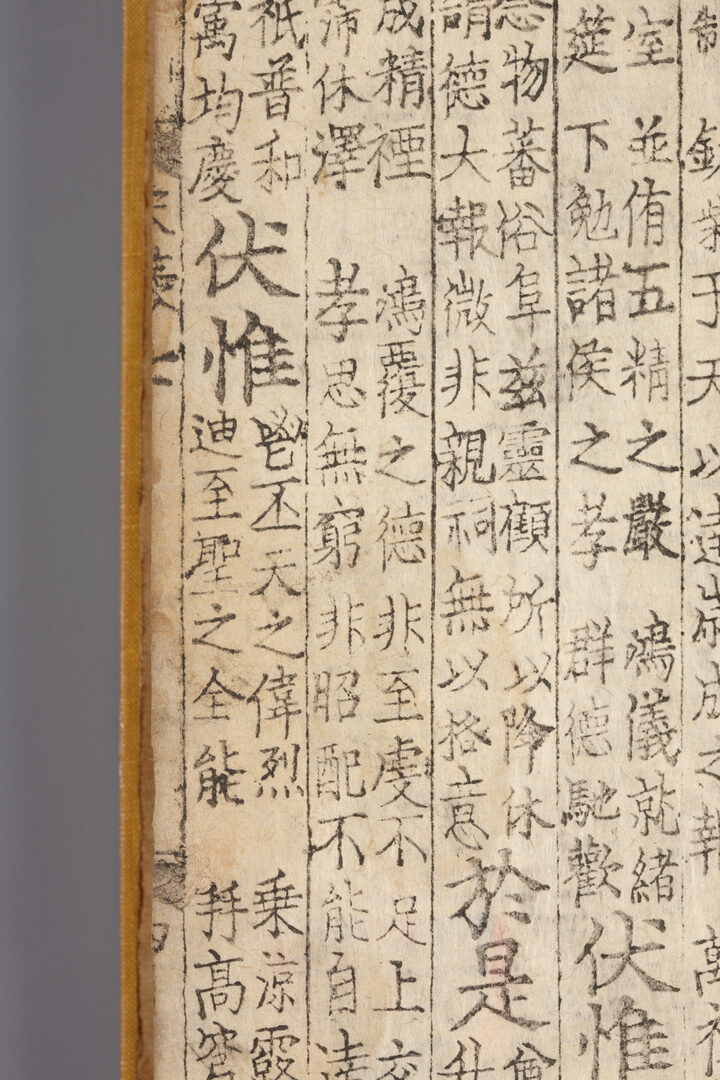 于天以達 成之報 萬
室 並侑五精之嚴 鴻儀就緒
筵 下勉諸侯之孝 群德馳歡
伏惟
念物蕃俗阜兹靈顧所以降休
謂德大報微非親祠無以格意
於是
會
升
成精禋 鴻覆之德非至虔不足上交
霈休澤 孝思無窮非昭配不能自達
祇普和
寓均慶
伏惟
丕天之偉烈 乘涼露
迪至聖之全能 高穹